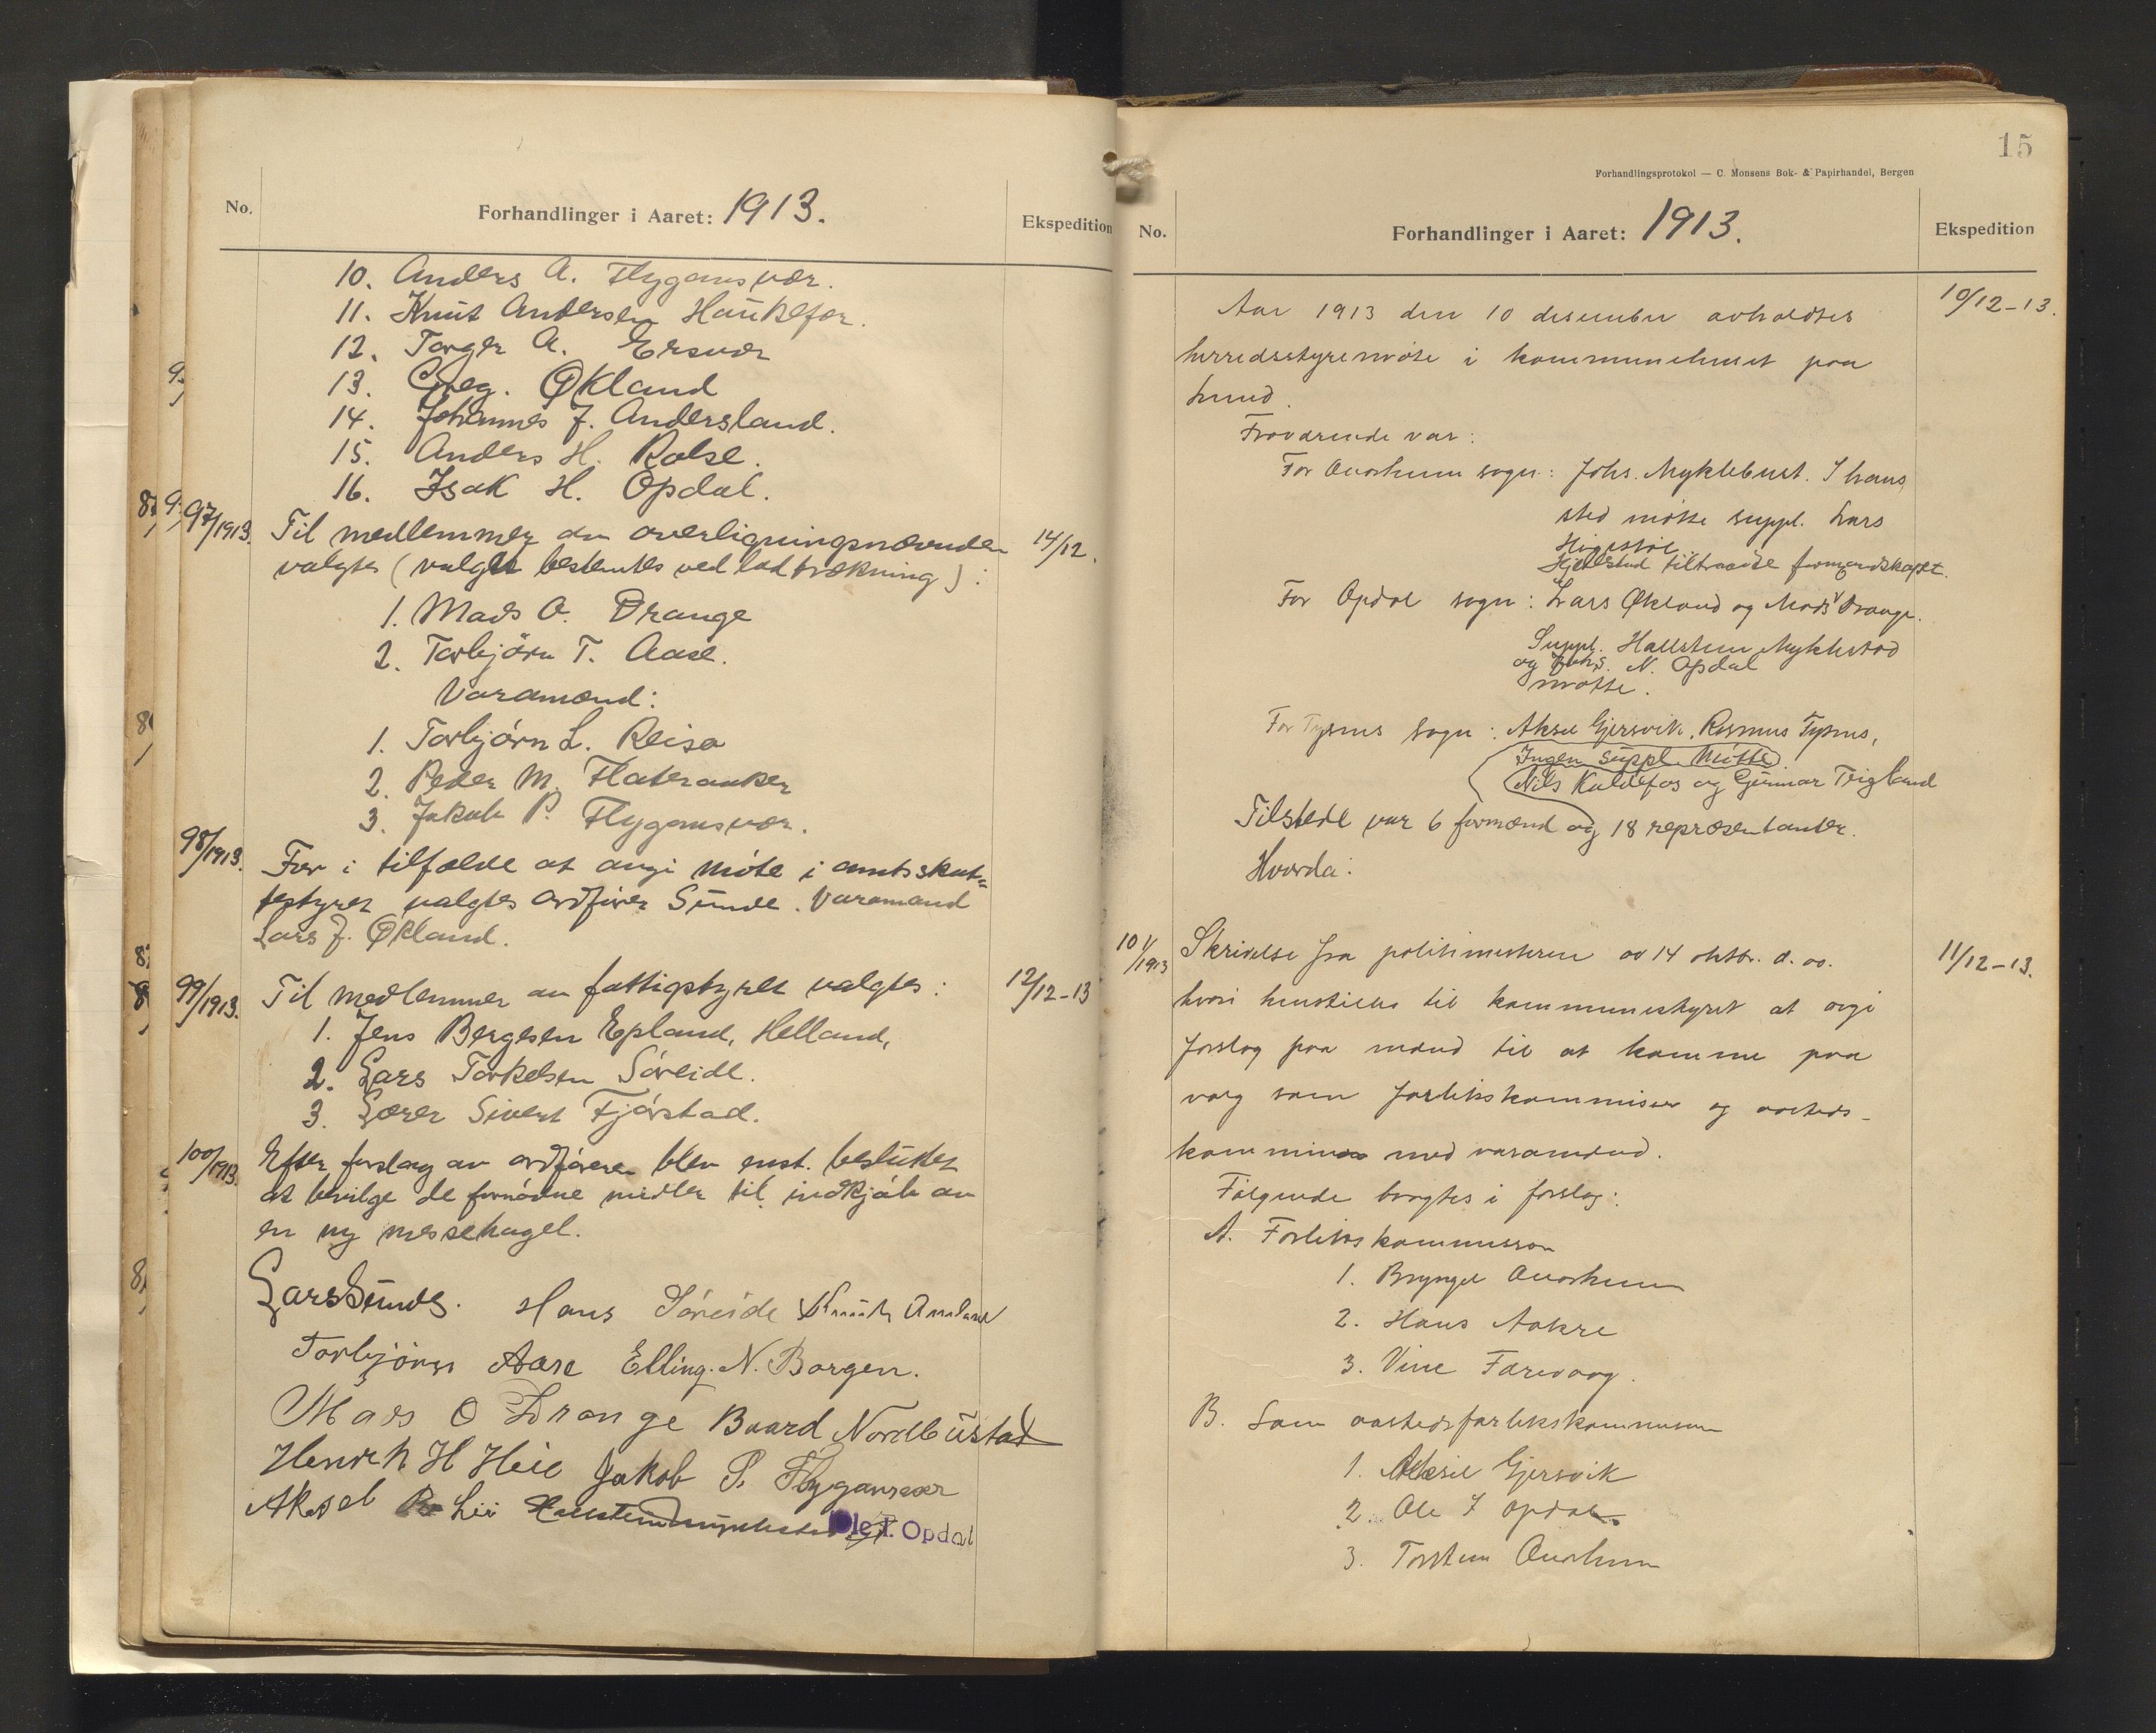 No.
Forhandlinger i Aaret: 1913.
Ekspedition
10. Anders A. Flygansvær.
11. Knut Andersen Haukefær.
12. Torger A. Ersvær
13. Greg. Økland
14. Johannes J. Andersland.
15. Anders H. Rolse.
16. Isak H. Opdal.
97/1913. Til medlemmer av overligningsnævnden 14/12.
valgtes (valget bestemtes ved lodtrækning):
1. Mads O. Drange
2. Torbjörn T. Aase.
Varamænd:
1. Torbjörn L. Reisa
2. Peder M. Flateraaker
3. Jakob P. Flygansvær.
98/1913. For i tilfælde at avgi möte i amtsskat=
testyret valgtes ordförer Sunde. Varamand
Lars J. Økland.
99/1913. Til medlemmer av fattigstyret valgtes: 12/12-13
1. Jens Bergesen Epland, Helland,
2. Lars Torkelsen Söreide.
3. Lærer Sivert Fjörstad.
100/1913. Efter forslag av ordföreren blev enst. besluttet
at bevilge de fornödne midler til indkjöb av
en ny messehagel.
Lars Sunde. Hans Söreide Knut
Torbjörn Aase Elling. N. Borgen.
Mads O Drange Baard Nordbustad
Henrik H Heie Jakob P. Flygansvær
Aksel Lii Ole T. Opdal
15
Forhandlingsprotokol — C. Monsens Bok- & Papirhandel, Bergen
No.
Forhandlinger i Aaret: 1913.
Ekspedition
Aar 1913 den 10 desember avholdtes 10/12-13.
herredsstyremöte i kommunehuset paa
Lund.
Fraværende var:
For Onarheim sogn: Johs. Myklebust. I hans
sted mötte suppl. Lars
Hjelestad tiltraadte formandskapet.
For Opdal sogn: Lars Økland og Mads Drange.
Suppl. Hallstein Myklestad
og Johs. N. Opdal
mötte.
For Tysnes sogn: Aksel Gjersvik, Rasmus Tysnes,
Ingen Suppl. Mötte
Nils Kaldefos og Gunnar Teigland
Tilstede var 6 formænd og 18 repræsentanter.
Hvorda:
101/1913 Skrivelse fra politimesteren av 14 oktbr. d. aa. 11/12-13.
hvori henstilles til kommunestyret at avgi
forslag paa mænd til at komme paa
valg som forlikskommisær og aasteds-
kommisær med varamænd.
Følgende bragtes i forslag:
A. Forlikskommission
1. Brynjel Onarheim
2. Hans Aakre
3. Vine Færevaag.
B. Som aastedsforlikskommission
1. Aksel Gjersvik
2. Ole T Opdal.
3. Torstein Onarheim